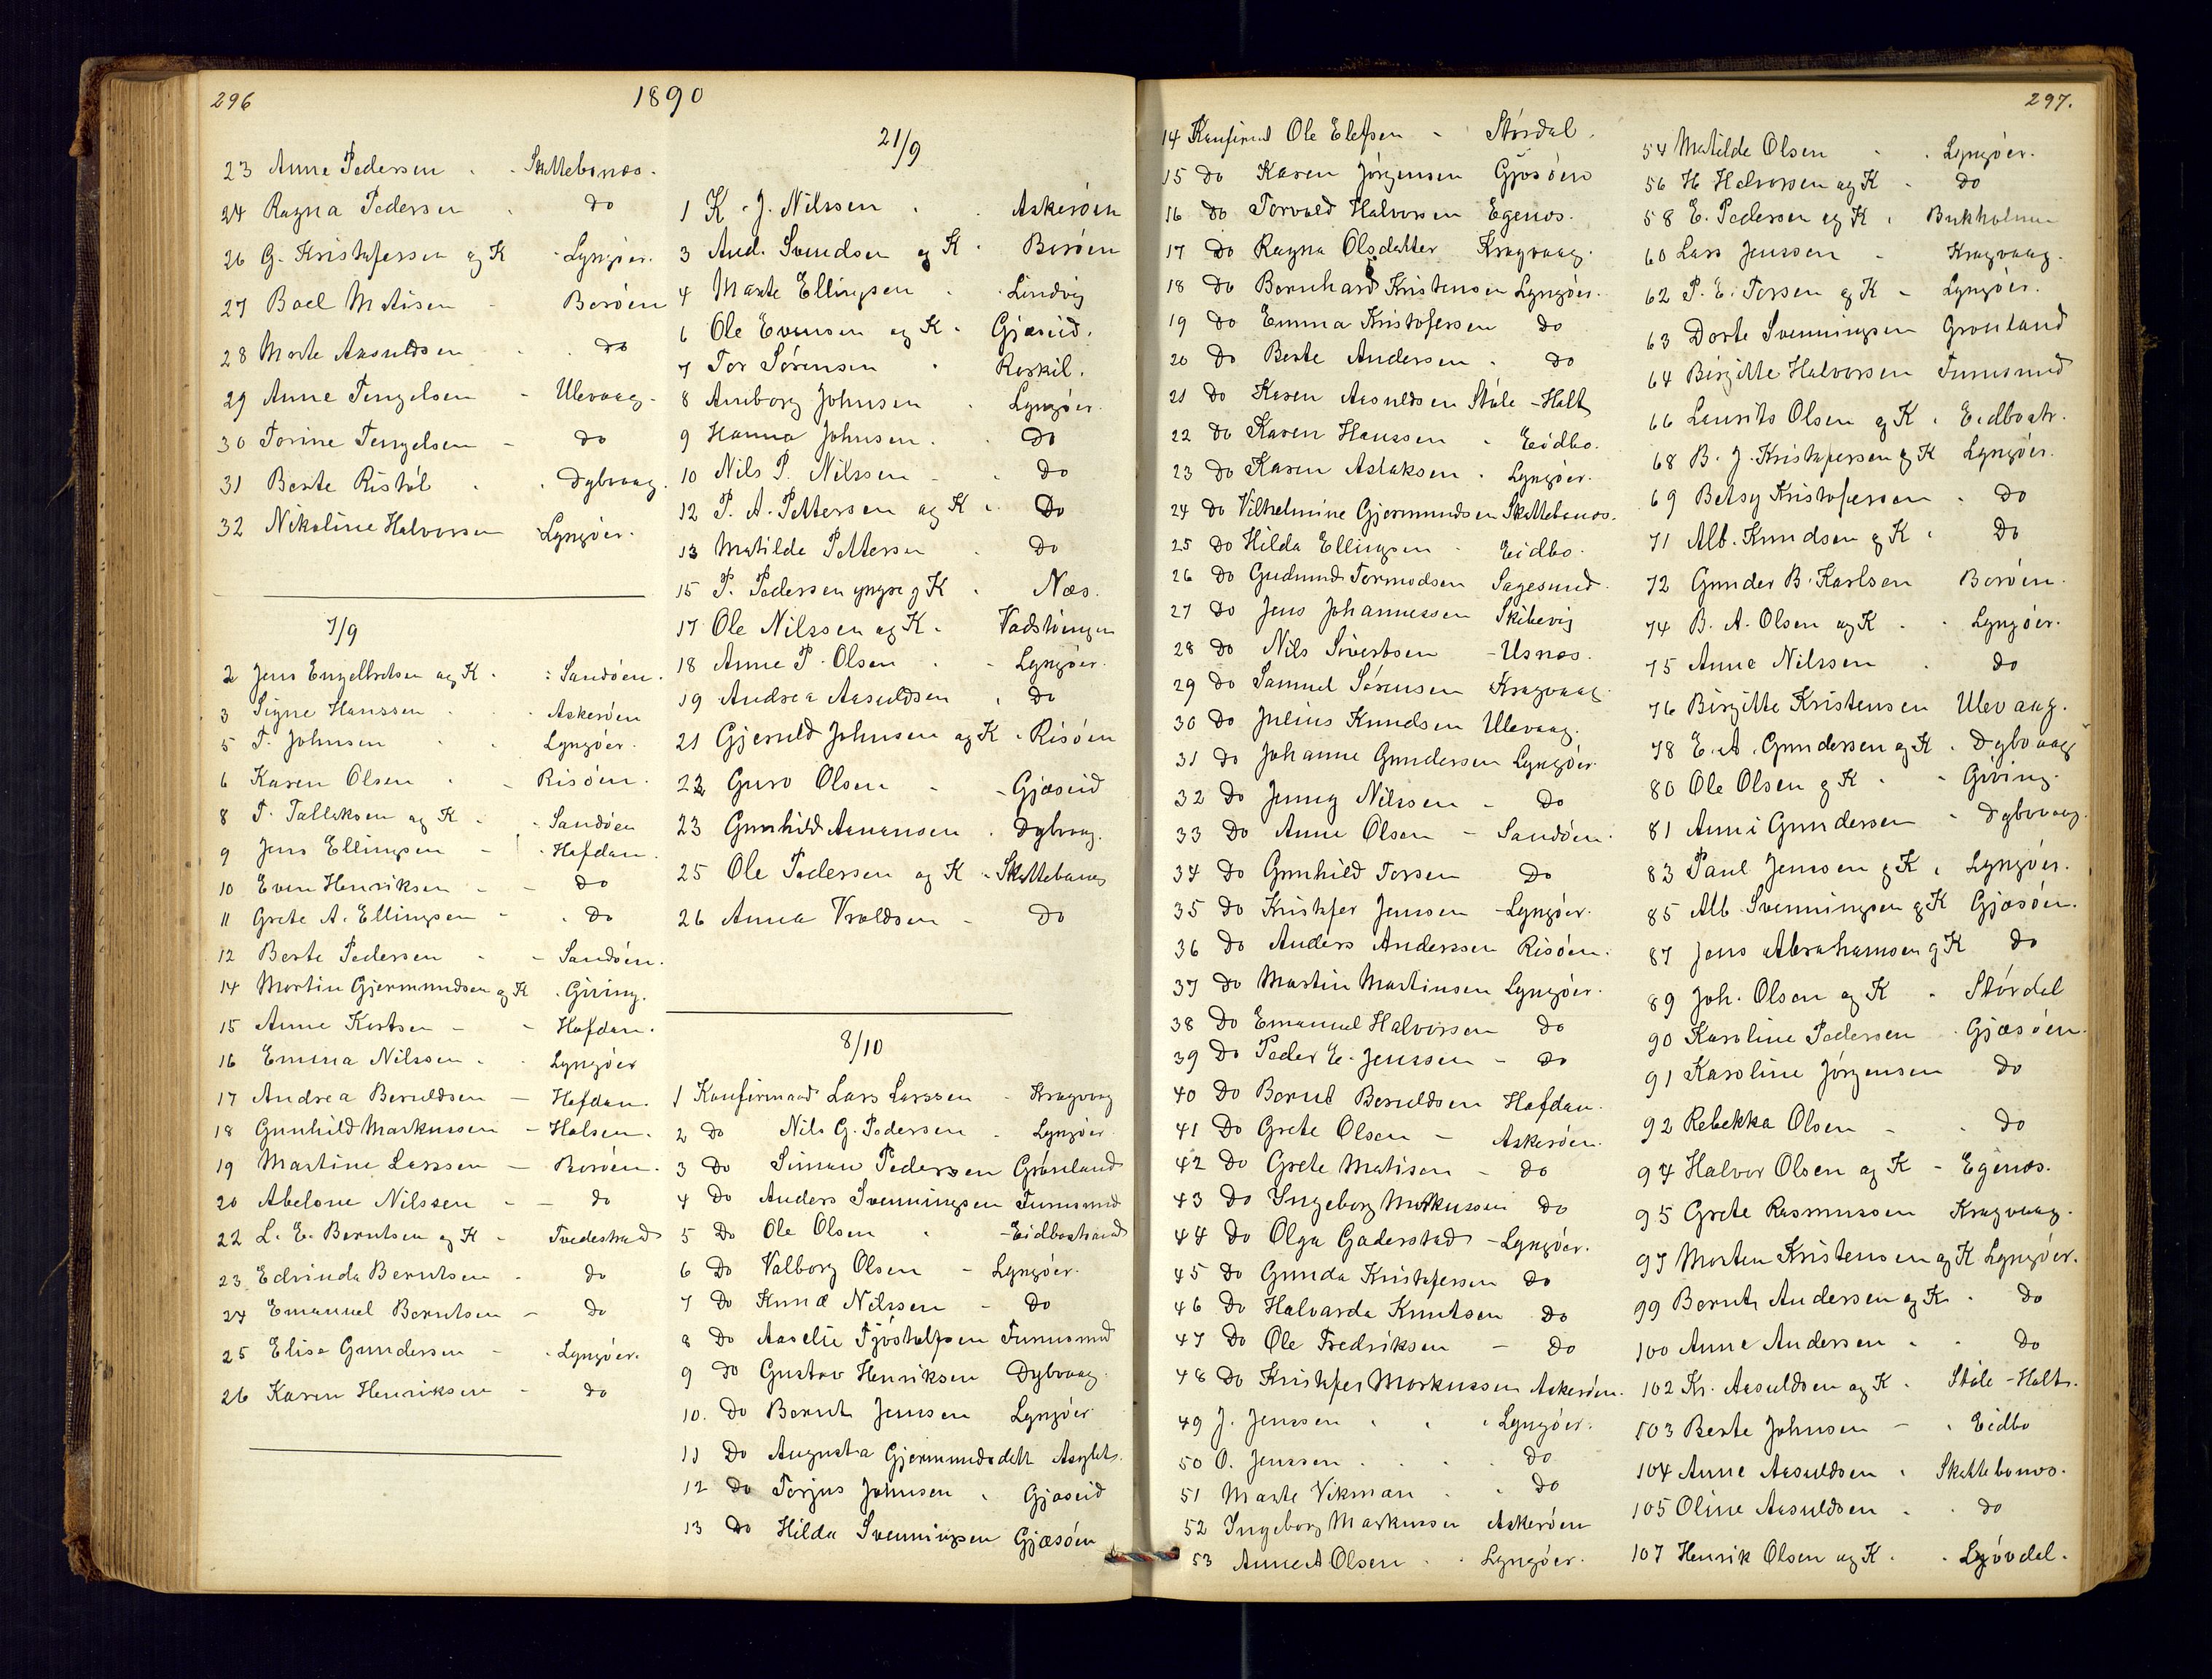 296
1890
23 Anne Pedersen - Skottebonæs.
24 Ragna Pedersen - Do
26 G. Kristofersen og K - Lyngöer.
27 Boel Matisen - Boröen
28 Marte Aasuldsen - Do
29 Anne Tengelsen - Ulevaag
30 Torine Tengelsen - Do
31 Berte Ristöl - Dybvaag.
32 Nikoline Halvorsen Lyngöer.
7/9
2 Jens Engelbretsen og K - Sandöen.
3 Signe Hanssen - Askeröen
5 T. Johnsen - Lyngöer.
6 Karen Olsen - Risöen.
8 T. Tallaksen og K - Sandöen
9 Jens Ellingsen - Hafdan.
10 Even Henriksen - Do
11 Grete A. Ellingsen - Do
12 Berte Pedersen - Sandöen.
14 Martin Gjermundsen og K. Giving.
15 Anne Kortsen - Hafdan.
16 Emma Nilssen - Lyngöer
17 Andrea Beruldsen - Hafdan.
18 Gunhild Markussen - Holsen.
19 Martine Larssen - Boröen.
20 Abelone Nilssen - Do
22 L. E. Berntsen og K - Tvedestrand
23 Edvinda Berntsen - Do
24 Emanuel Berntsen - Do
25 Elise Gundersen - Lyngöer.
26 Karen Henriksen - Do
21/9
1 K. J. Nilssen . Askeröen
3 And. Svendsen og K - Boröen
4 Marte Ellingsen . Lindvig
6 Ole Evensen og K - Gjæseid.
7 Tor Sörensen . Roskil.
8 Amborg Johnsen . Lyngöer.
9 Hanna Johnsen . Do
10 Nils P. Nilssen - Do
12 P. A. Pettersen og K . Do
13 Matilde Pettersen . Do
15 P. Pedersen yngre og K . Næs.
17 Ole Nilssen og K. Vadstöingen
18 Anne P. Olsen . Lyngöer.
19 Andrea Aasuldsen . Do
21 Gjeruld Johnsen og K . Risöen
22 Guro Olsen - Gjæseid
23 Gunhild Aanensen . Dybvaag.
25 Ole Pedersen og K - Skottebonæs
26 Anna Vroldsen - Do
8/10
1 Konfirmand Lars Larssen - Kragvaag
2 Do Nils G. Pedersen - Lyngöer
3 Do Simon Pedersen Grönland
4 Do Anders Svenningsen Furusund
5 Do Ole Olsen - Eidbostrand
6 Do Valborg Olsen - Lyngöer.
7 Do Knud Nilssen - Do
8 Do Aaselie Tjöstolfsen Furusund
9 Do Gustav Henriksen Dybvaag.
10. Do Bernt Jensen Lyngöer
11 Do Augusta Gjermundsdatt Asylet.
12 Do Torjus Johnsen . Gjæseid
13 Do Hilda Svenningsen Gjæsöen
297.
14 Konfirmd Ole Elefsen - Stördal.
15 Do Karen Jörgensen Gjæsöen
16 Do Torvald Halvorsen Egenæs.
17 Do Ragna Olsdatter Kragvaag.
18 Do Bernhard Kristensen Lyngöer.
19 Do Emma Kristofersen Do
20 Do Berte Andersen . Do
21 Do Karen Aasuldsen Stöle - Holt
22 Do Karen Hanssen . Eidbo.
23 Do Karen Aslaksen . Lyngöer.
24 Do Vilhelmine Gjermundsen Skottebonæs.
25 Do Hilda Ellingsen . Eidbo.
26 Do Gudmund Tormodsen Sagesund.
27 Do Jens Johannessen Skibevig
28 Do Nils Sivertsen - Usnæs.
29 Do Samuel Sörensen Kragvaag.
30 Do Julius Knudsen Ulevaag.
31 Do Johanne Gundersen Lyngöer.
32 Do Jenny Nilssen - Do
33 Do Anne Olsen - Sandöen.
34 Do Gunhild Torsen Do
35 Do Kristofer Jenssen - Lyngöer.
36 Do Anders Anderssen Risöen.
37 Do Martin Martinsen Lyngöer.
38 Do Emanuel Halvorsen Do
39 Do Peder E. Jenssen - Do
40 Do Bernt Beruldsen Hafdan.
41 Do Grete Olsen - Askeröen.
42 Do Grete Matisen - Do
43 Do Ingeborg Markussen Do
44 Do Olga Gaderstad - Lyngöer.
45 Do Gunda Kristofersen Do
46 Do Halvarda Knutsen Do
47 Do Ole Fredriksen - Do
48 Do Kristofer Markussen Askeröen.
49 J. Jenssen . . Lyngöer.
50 O. Jenssen . . Do
51 Marte Vikman . . Do
52 Ingeborg Markussen Askeröen
53 Anne A Olsen . . Lyngöer.
54 Matilde Olsen . . Lyngöer.
56 H. Halvorsen og K . Do
58 E. Pedersen og K . Bukholmen
60 Lars Jenssen - Kragvaag.
62 P. E. Torsen og K - Lyngöer.
63 Dorte Svenningsen Grönland
64 Birgitte Halvorsen Furusund
66 Laurits Olsen og K . Eidbostr.
68 B. J. Kristofersen og K Lyngöer.
69 Betsy Kristofersen . Do
71 Alb. Knudsen og K . Do
72 Gunder B. Karlsen Boröen.
74 B. A. Olsen og K . . Lyngöer.
75 Anne Nilssen . Do
76 Birgitte Kristensen Ulevaag.
78 E. A. Gundersen og K . Dybvaag
80 Ole Olsen og K . . Giving.
81 Anne Gundersen - Dybvaag.
83 Paul Jenssen og K . Lyngöer.
85 Alb Svenningsen og K Gjæsöen.
87 Jens Abrahamsen og K Do
89 Joh. Olsen og K - Stördal
90 Karoline Pedersen . Gjæsöen.
91 Karoline Jörgensen Do
92 Rebekka Olsen - . Do
94 Halvor Olsen og K - Egenæs.
95 Grete Rasmussen Kragvaag.
97 Morten Kristensen og K Lyngöer.
99 Bernt Andersen og K . Do
100 Anne Andersen . . Do
102 Kr. Aasuldsen og K . Stöle - Holt.
103 Berte Johnsen - . Eidbo
104 Anne Aasuldsen . Skottebonæs.
105 Oline Aasuldsen . . Do
107 Henrik Olsen og K . . Lyövdal.